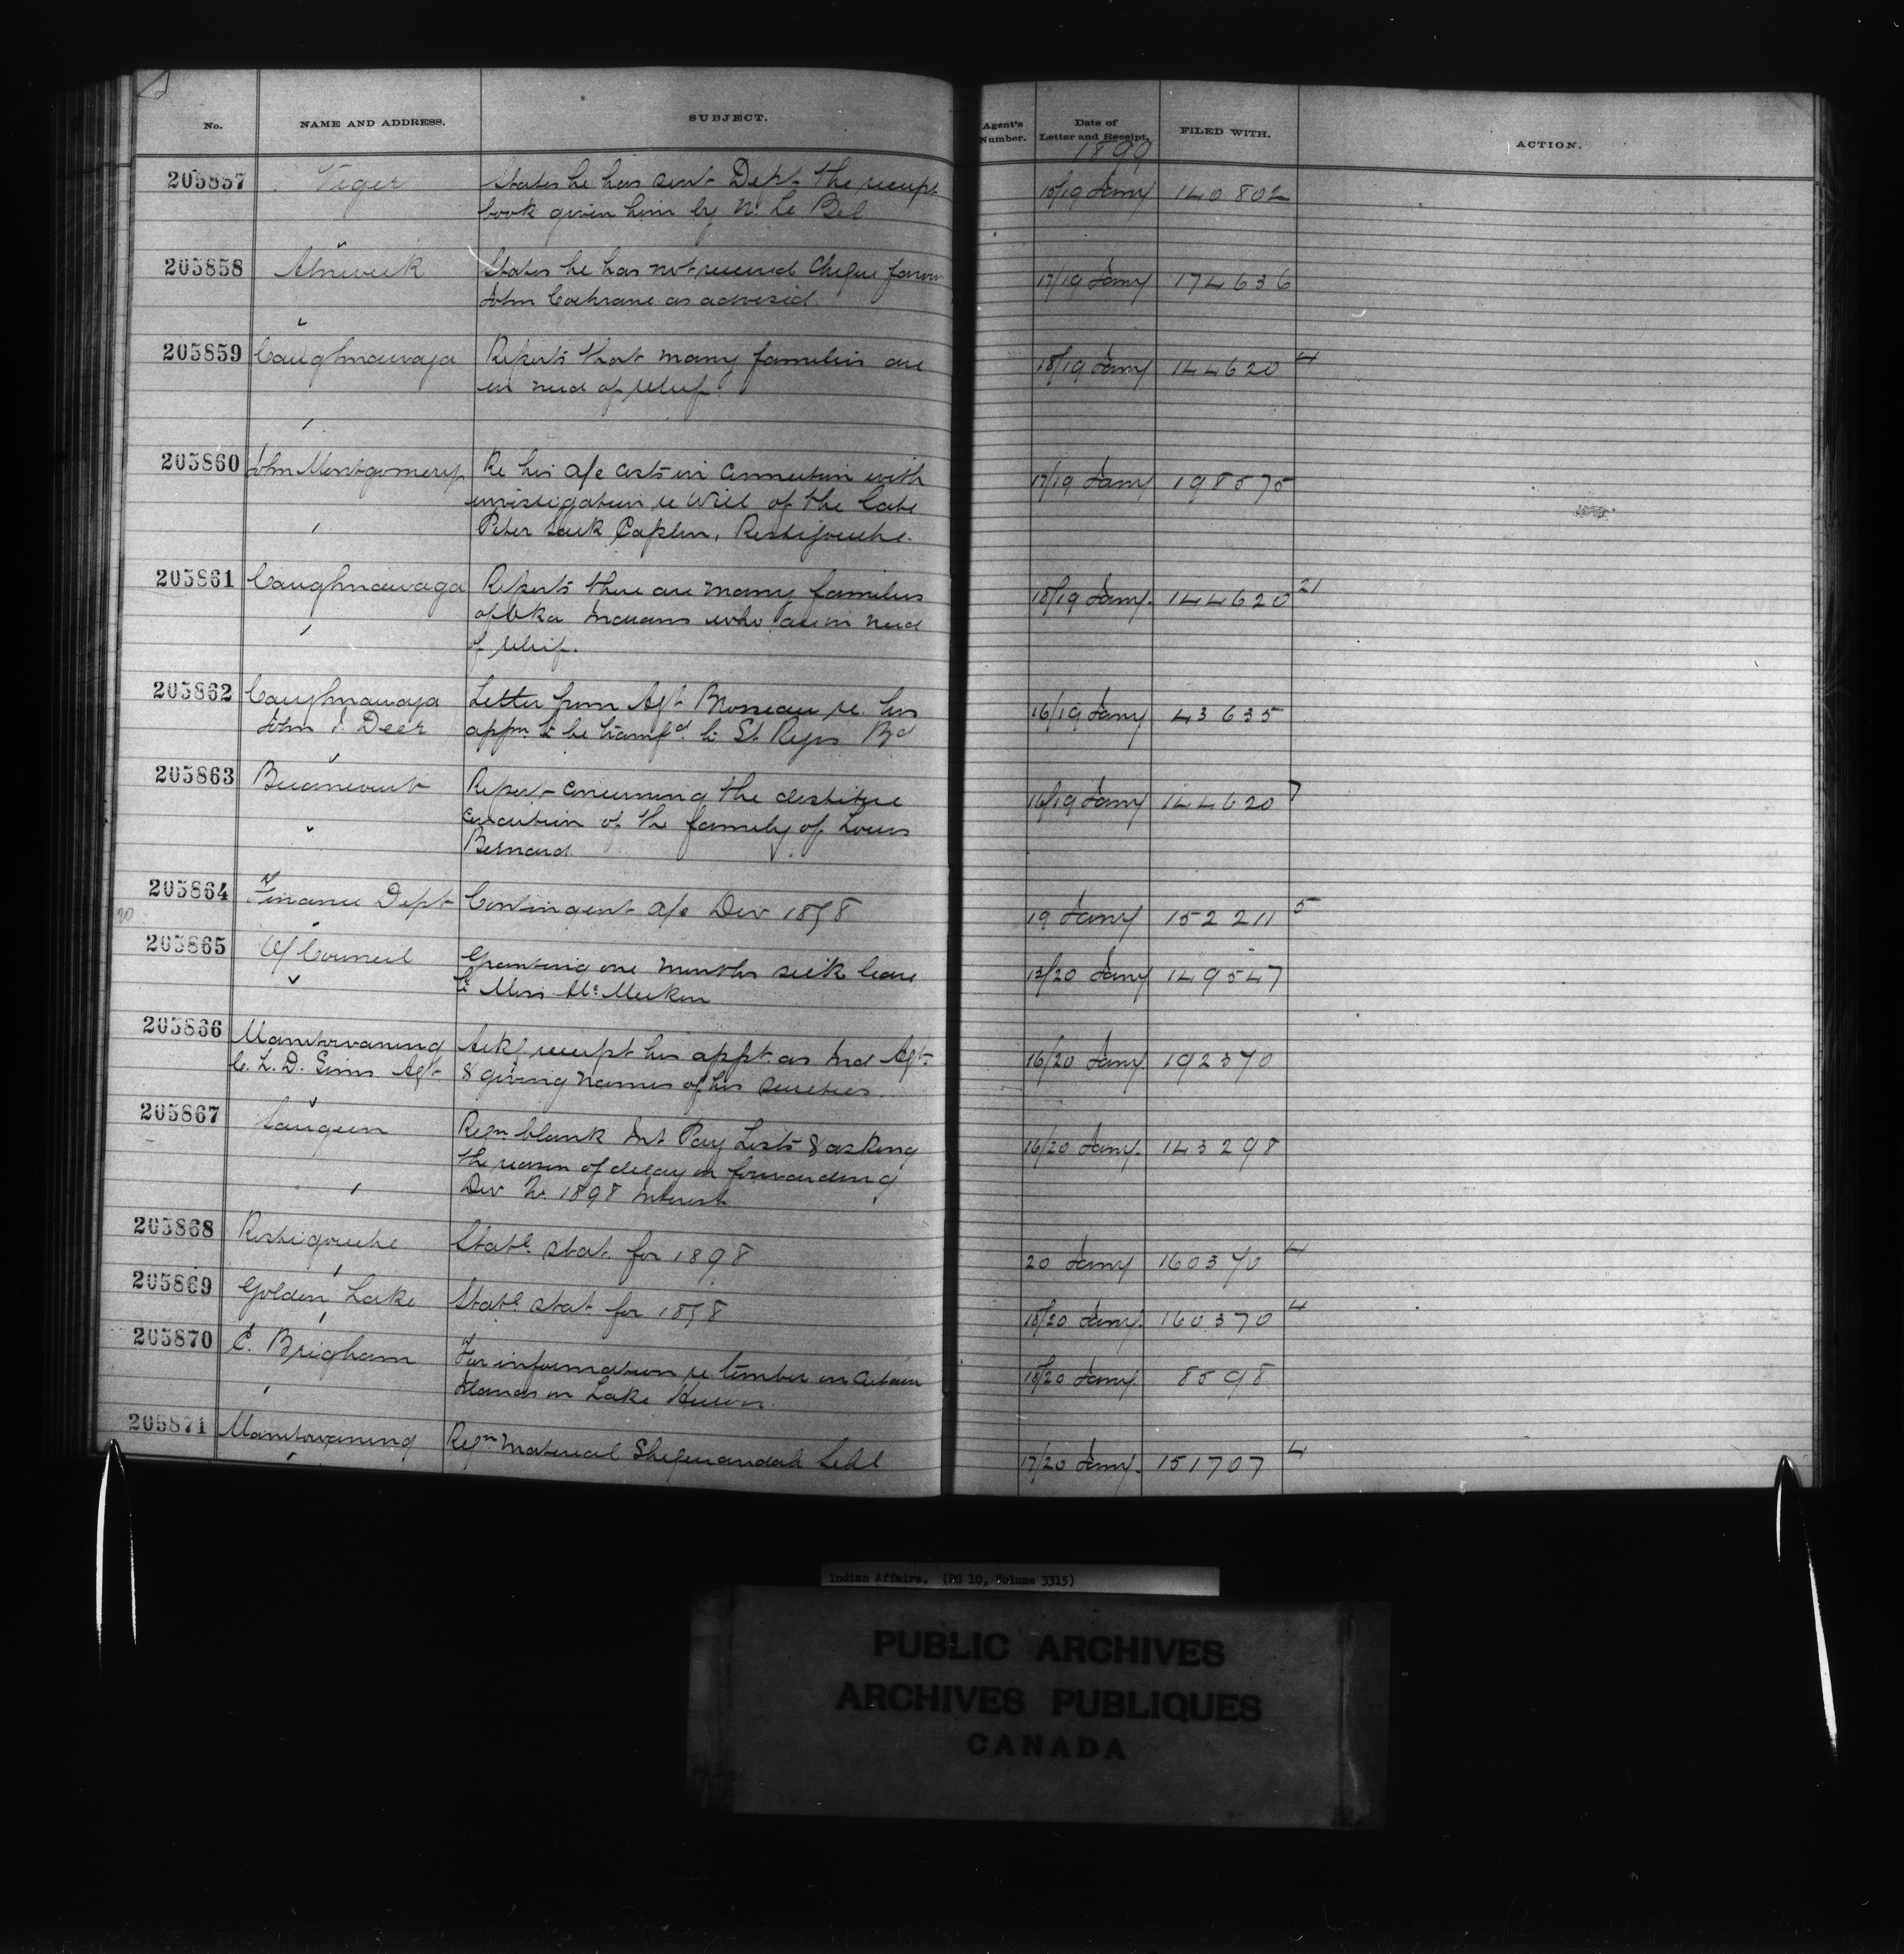 No. NAME AND ADDRESS. SUBJECT. Agent's Number. Date of Letter and Receipt. FILED WITH. ACTION.
1899
205857 Viger States he has sent Dept. the receipt 18/19 Jany 140802
book given him by N. Le Bel
205858 Alnwick States he has not received Cheque favour 17/19 Jany 174636
John Cochrane as advised.
205859 Caughnawaga Reports that many families are 18/19 Jany 144620 4
in need of relief.
205860 John Montgomery Re his a/c costs in connection with 17/19 Jany 198575
investigation re Will of the late
Peter Caplin, Restigouche.
205861 Caughnawaga Reports there are many families 18/19 Jany. 144620 21
of Oka Indians who are in need
of relief.
205862 Caughnawaga Letter from Agt. Brosseau re his 16/19 Jany 43635
John I. Deer appn. to be transfd. to St. Regis Bd
205863 Becancourt Report concerning the destitute 16/19 Jany 144620 7
condition of the family of Louis
Bernard
205864 Finance Dept Contingent a/c Dec 1898 19 Jany 152211 5
20
205865 O/Council Granting one months sick leave 13/20 Jany 149547
to Miss
205866 Manitowaning Ackg receipt his appt. as Ind Agt. 16/20 Jany 192370
C. L. D. Sims Agt & giving names of his sureties.
205867 Saugeen Reqn blank Int Pay Lists & asking 16/20 Jany. 143298
the reason of delay in forwarding
1898 Interest
205868 Restigouche Statl. stat. for 1898 20 Jany 160370 4
205869 Golden Lake Statl. stat for 1898 18/20 Jany. 160370 4
205870 C. Brigham For information re timber on certain 18/20 Jany. 8598
Islands in Lake Huron.
205871 Manitowaning Reqn material Sheguiandah Schl 17/20 Jany. 151707 4
Indian Affairs. (RG 10, Volume 3315)
PUBLIC ARCHIVES
ARCHIVES PUBLIQUES
CANADA